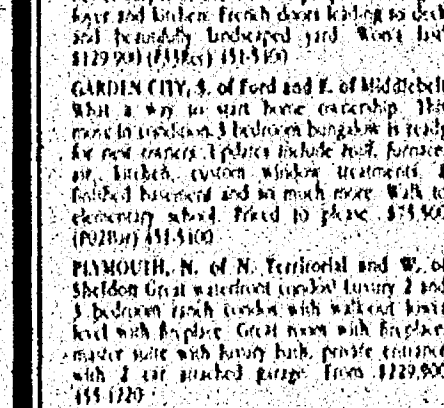 foyer and kitchen. French doors leading to deck
and beautifully landscaped yard. Won't last
$129,900 451-5400
GARDEN CITY, S. of Ford and E. of Middlebelt
What a way to start home ownership. This
move in condition 3 bedroom bungalow is ready
for new owners. Updates include roof, furnace,
air, kitchen, custom window treatments,
finished basement and so much more. Walk to
elementary school. Priced to please.
451-5400
PLYMOUTH, N. of N. Territorial and W. of
Sheldon Great waterfront condo! Luxury 2 and
3 bedroom ranch condos with walkout lower
level with fireplace. Great room with fireplace,
master suite with luxury bath, private entrance
with 2 car attached garage. From